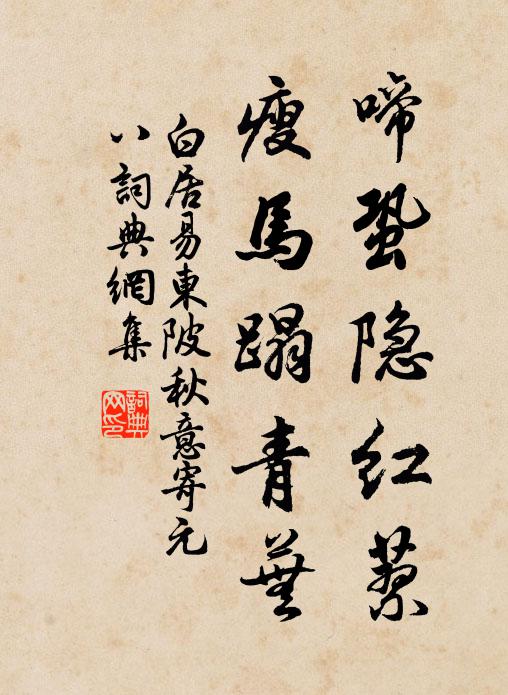 啼蛩隐红蓼
瘦馬蹋青蕪
白居易東陂秋意寄元
八詞典網集
詞典網印